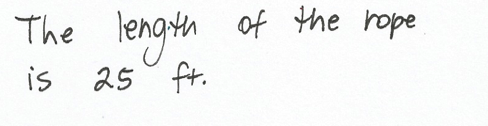 The length of the rope
is 25 ft.